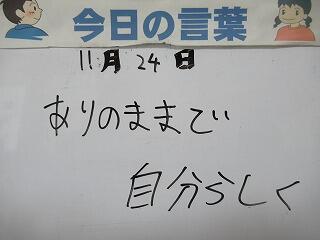 今日の言葉
11月24日
ありのままで
自分らしく